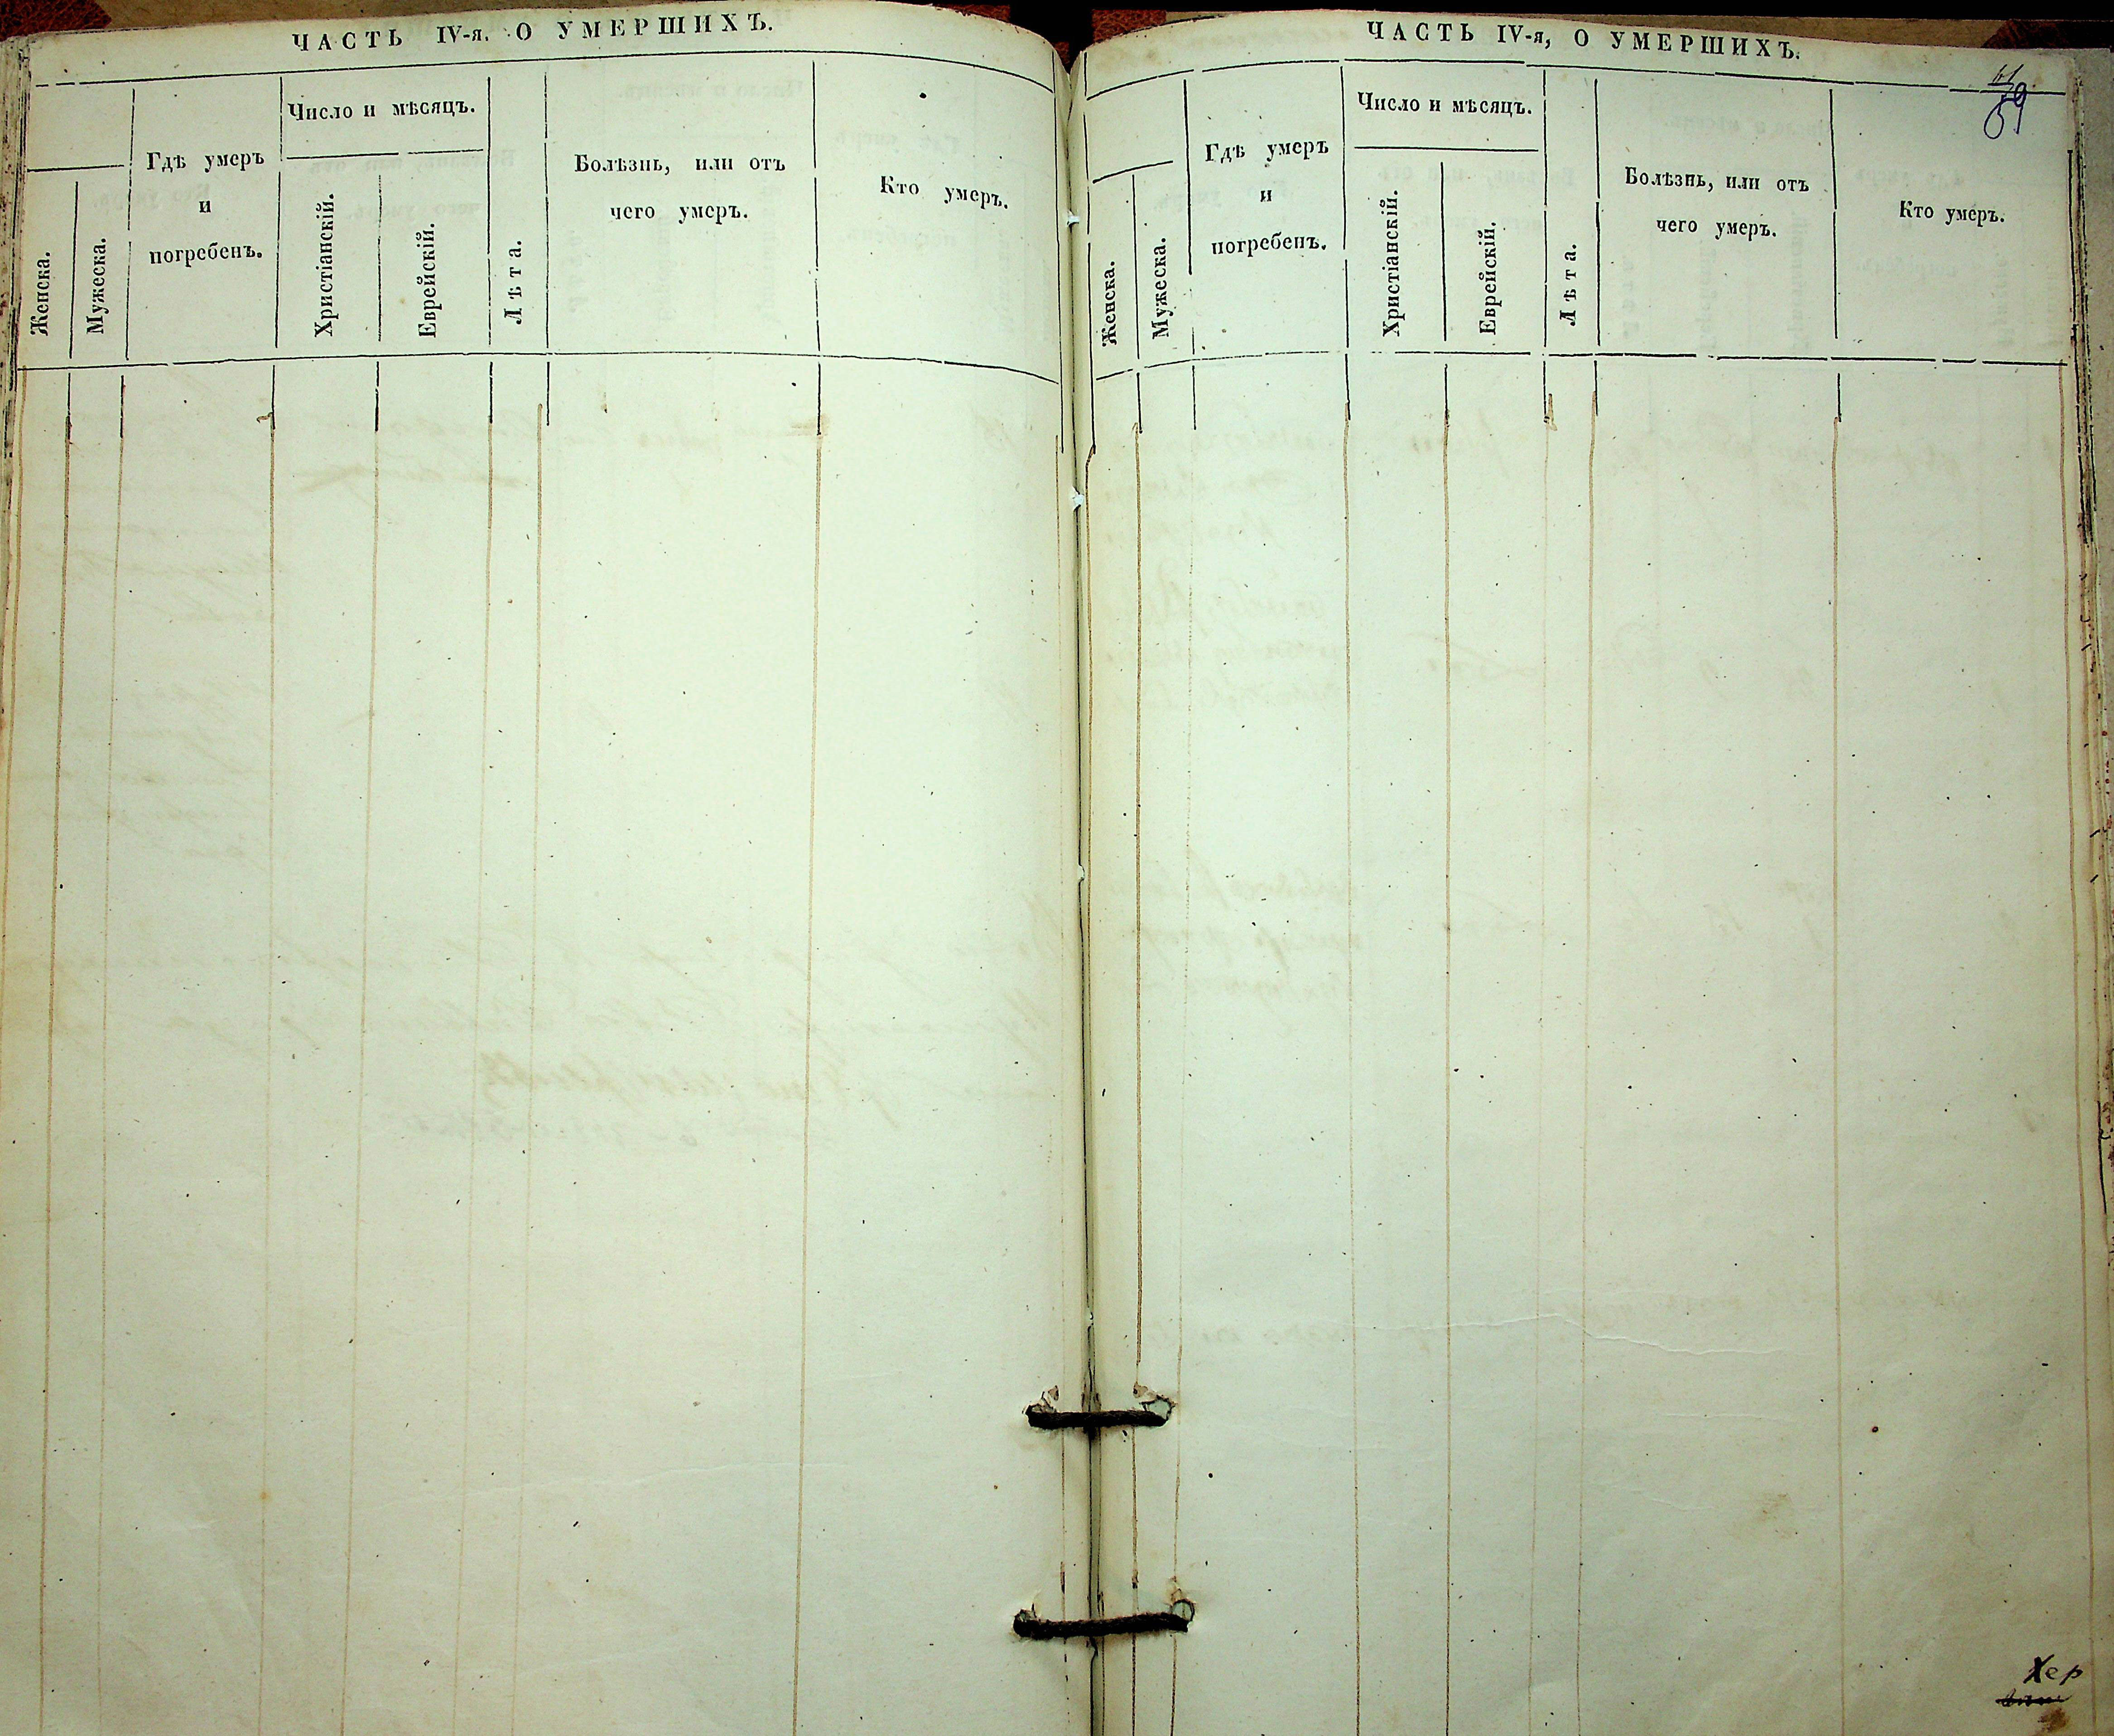 ЧАСТЬ IV-я. О УМЕРШИХЪ.
Женска.
Мужеска.
Гдѣ умеръ
и
погребенъ.
Число и мѣсяцъ.
Христіанскій.
Еврейскій.
Лѣта.
Болѣзнь, или отъ
чего умеръ.
Кто умеръ.
ЧАСТЬ IV-я, О УМЕРШИХЪ.
61
59
Женска.
Мужеска.
Гдѣ умеръ
и
погребенъ.
Число и мѣсяцъ.
Христіанскій.
Еврейскій.
Лѣта.
Болѣзнь, или отъ
чего умеръ.
Кто умеръ.
Хер